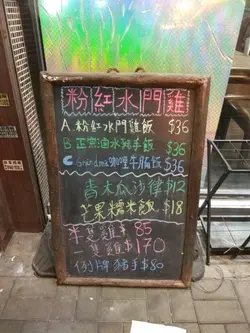 粉紅水門雞
A 粉紅水門雞飯 $36
B 正宗滷水豬手飯 $36
C Grandma咖哩牛腩飯 $36
青木瓜沙律$12
芒果糯米飯 $18
半隻雞$ 85
一隻雞$170
例牌豬手$80